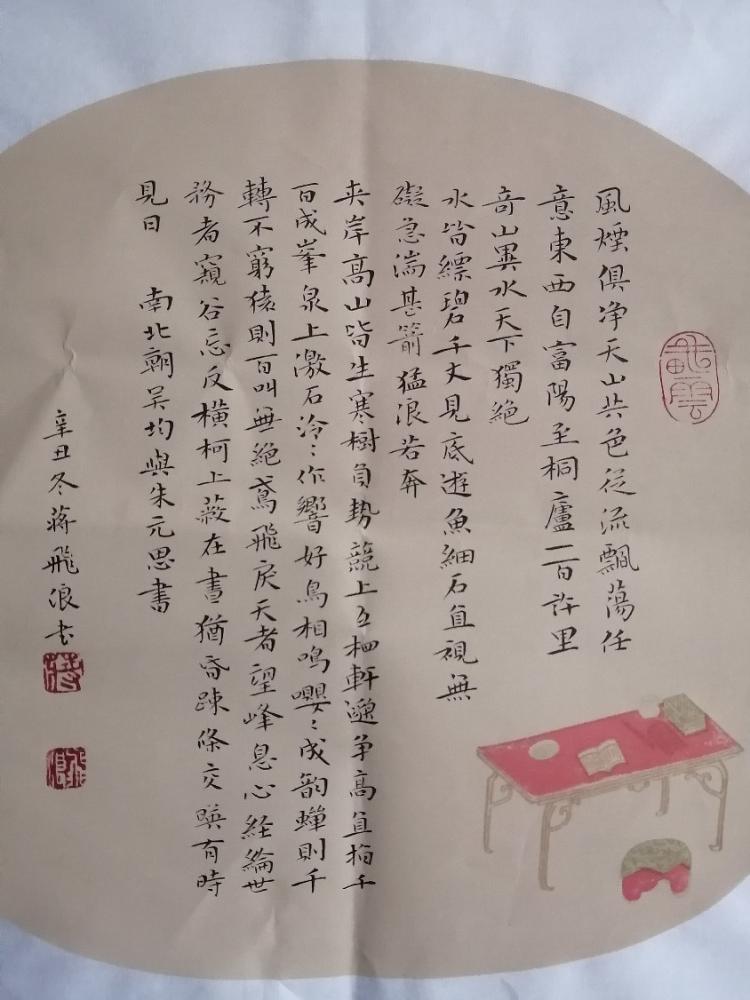 風煙俱净天山共色從流飄蕩任
意東西自富陽至桐廬一百許里
奇山異水天下獨絕
水皆縹碧千丈見底遊魚細石直視無
礙急湍甚箭猛浪若奔
夾岸高山皆生寒樹負勢競上互相軒邈爭高直指千
百成峯泉上激石泠〻作響好鳥相鳴嚶〻成韵蟬則千
轉不窮猿則百叫無絕鳶飛戾天者望峰息心經綸世
務者窺谷忘反橫柯上蔽在晝猶昏疎條交暎有時
見日 南北朝吴均與朱元思書
辛丑冬蔣飛浪书